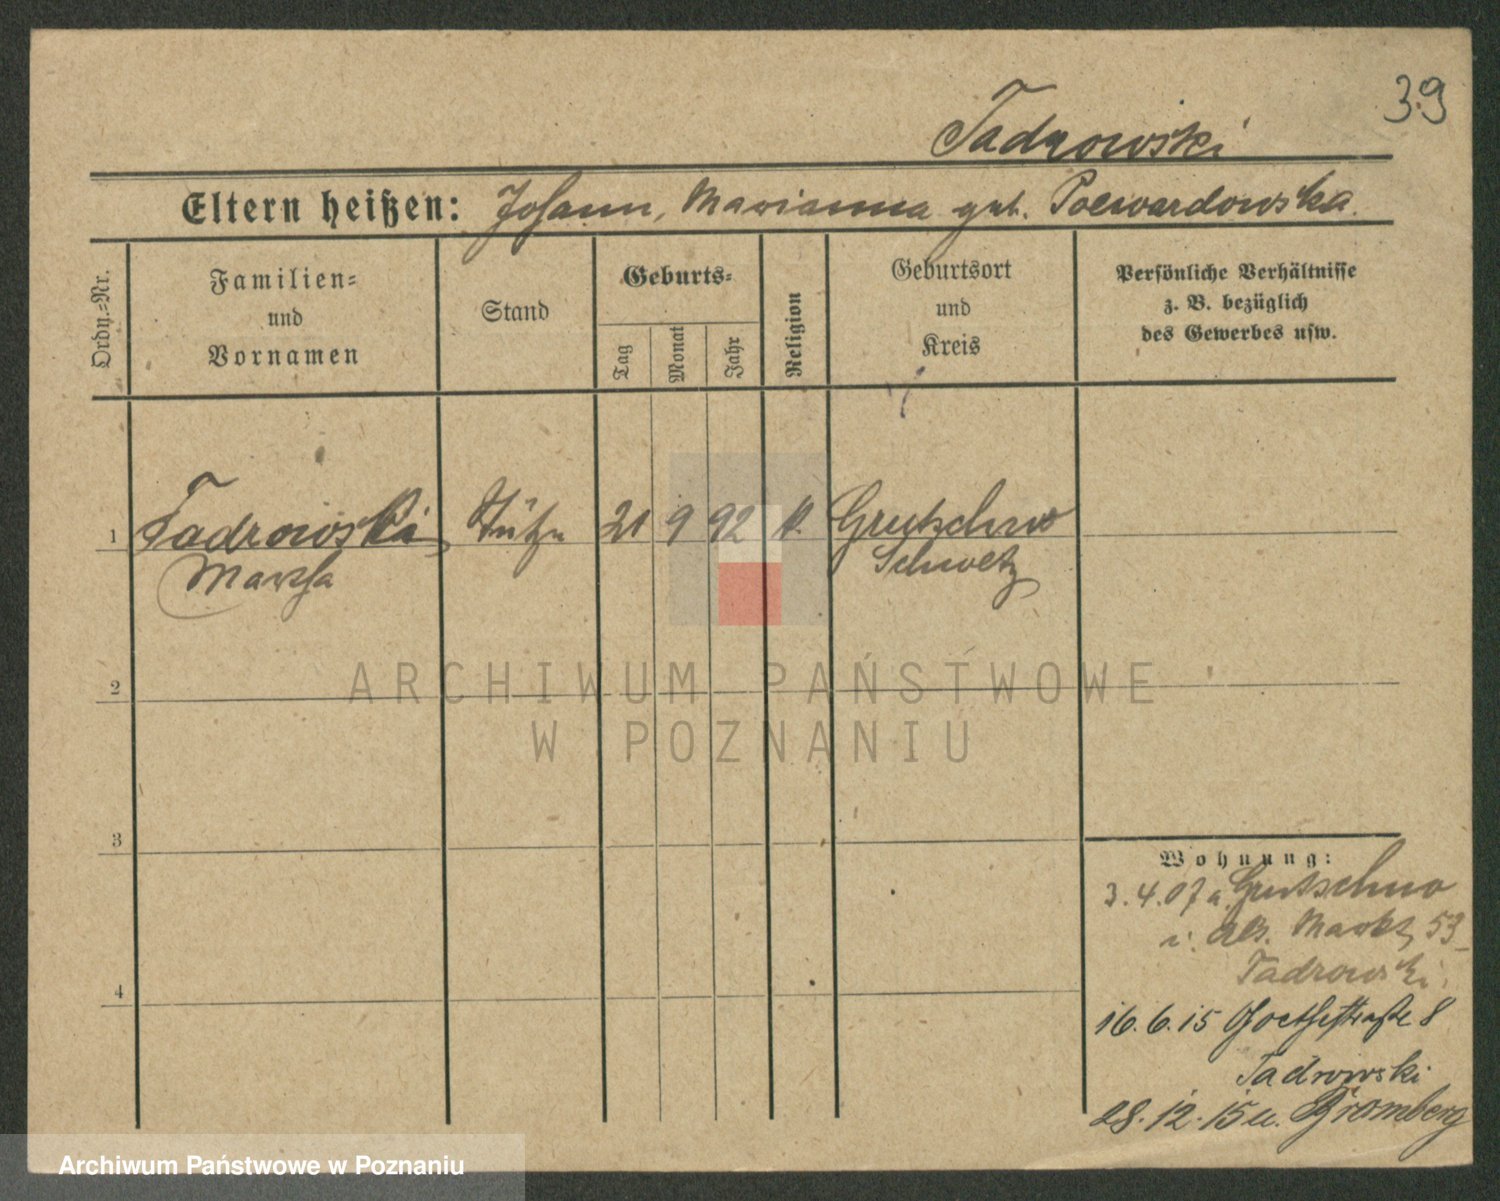 39
Tadrowski
Eltern heißen: Johann, Marianna geb. Polewardowska.
Ordn.-Nr.
Familien-
und
Vornamen
Stand
Geburts-
Tag
Monat
Jahr
Religion
Geburtsort
und
Kreis
Persönliche Verhältnisse
z. B. bezüglich
des Gewerbes usw.
1 Tadrowski Stütze 21 9 92 k. Grutschno
Martha Schwetz
2
ARCHIWUM PAŃSTWOWE
W POZNANIU
3
4
Wohnung:
3.4.07 a. Grutschno
i. Markt 53
Tadrowski.
16.6.15 Goethestraße 8
Tadrowski
28.12.15 u. Bromberg
Archiwum Państwowe w Poznaniu